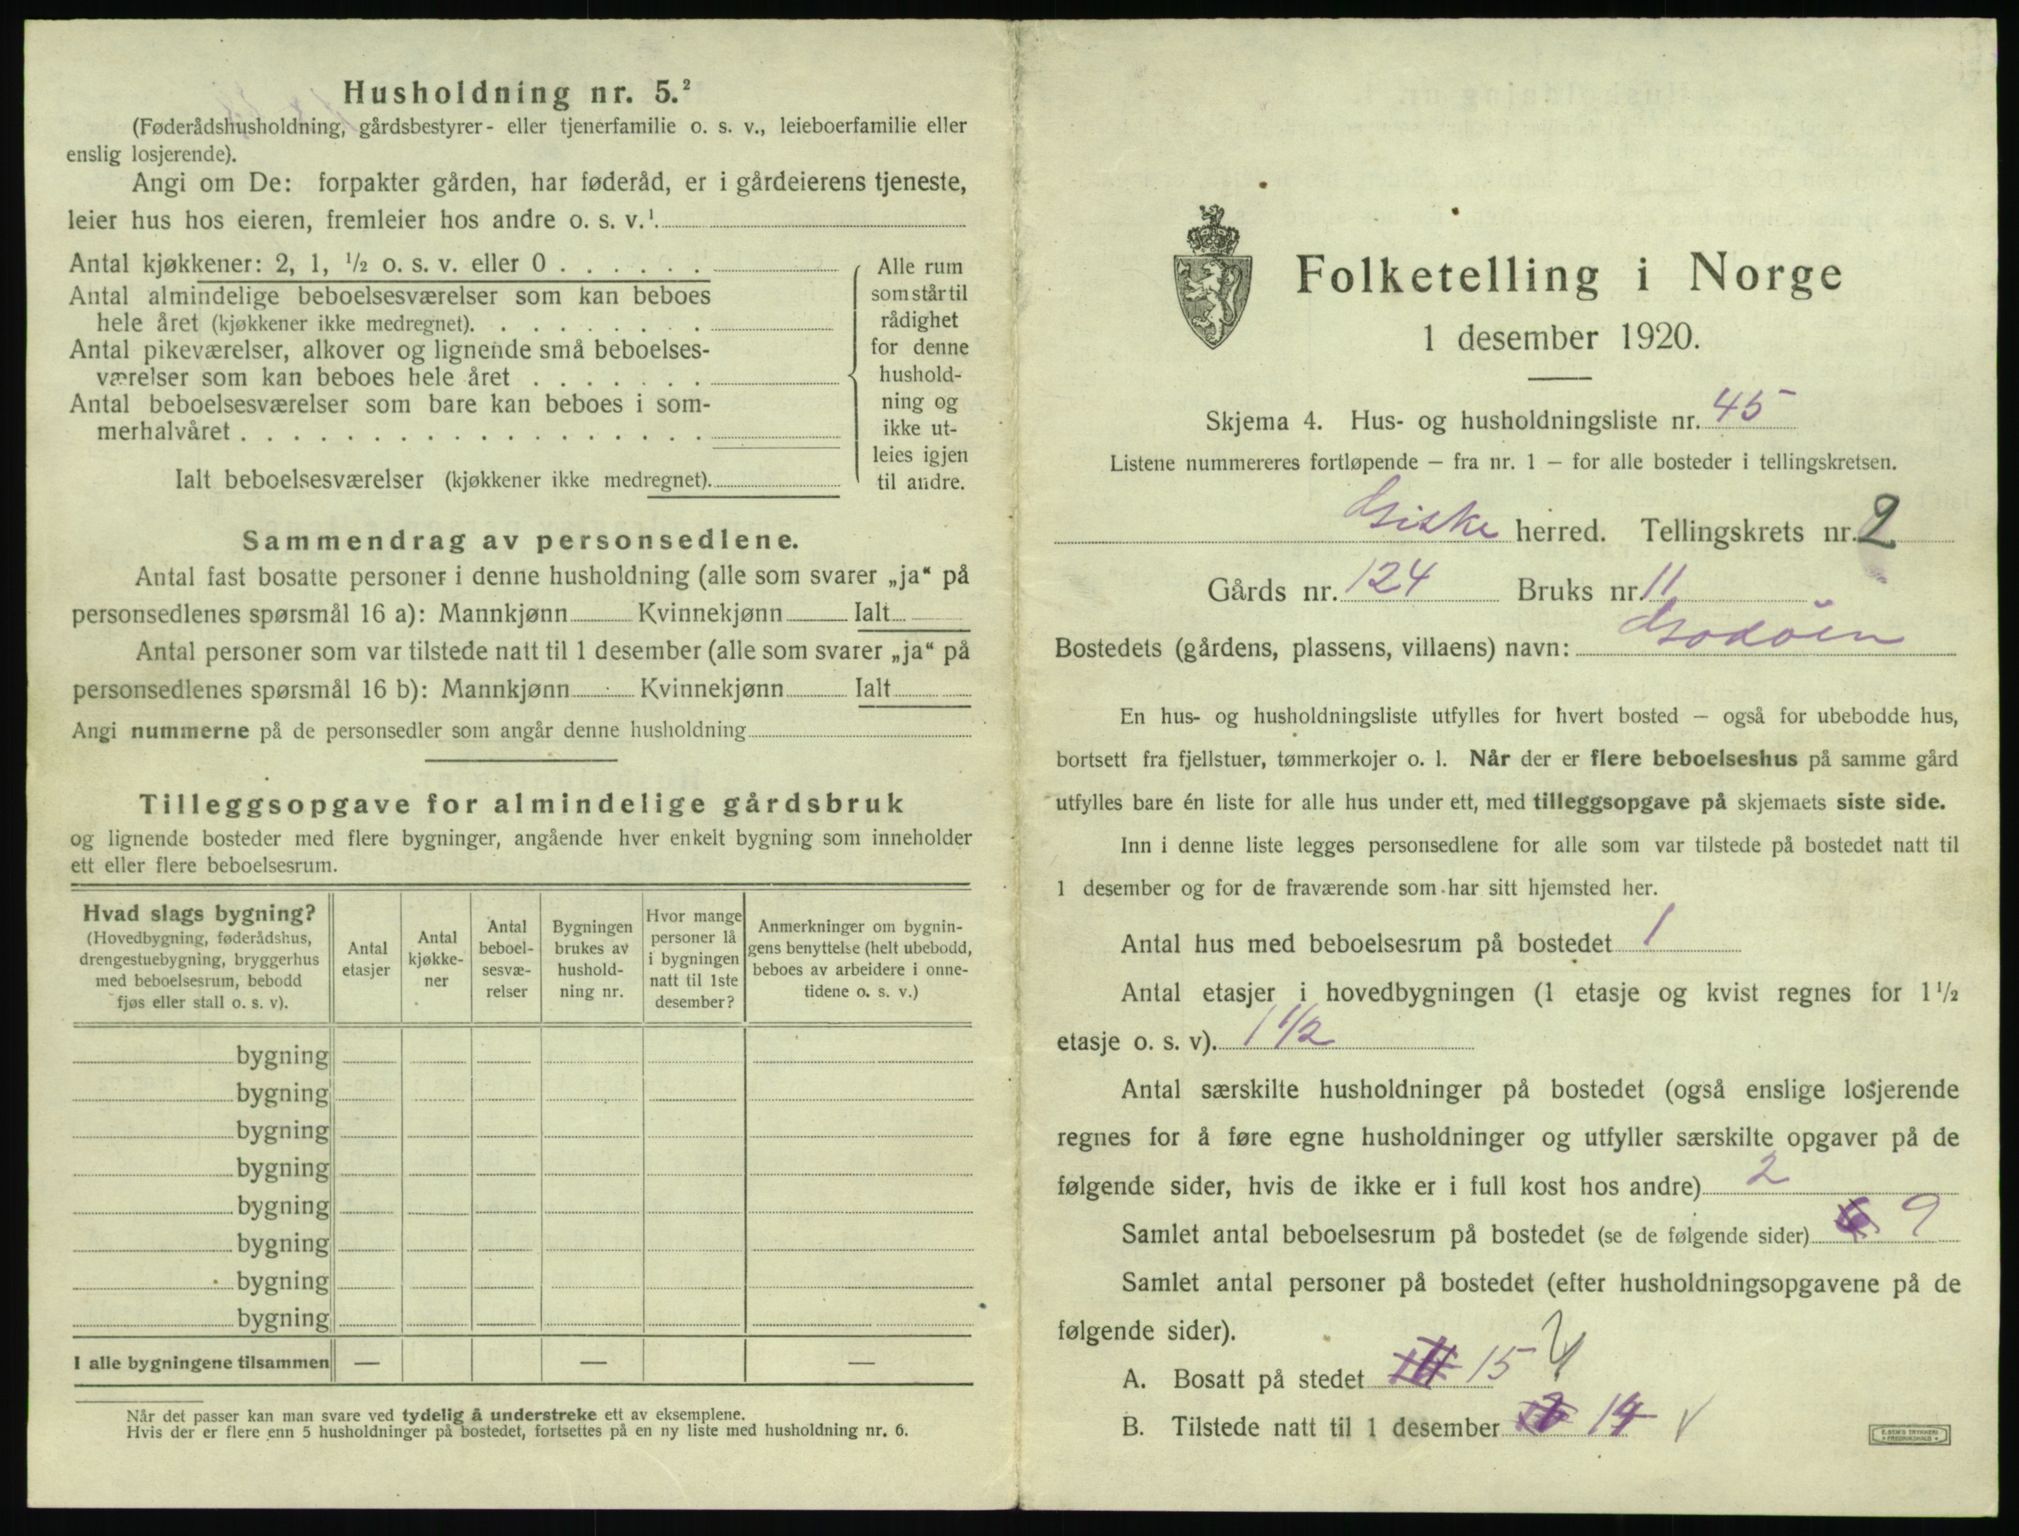 Husholdning nr. 5.²
(Føderådshusholdning, gårdsbestyrer- eller tjenerfamilie o. s. v., leieboerfamilie eller
enslig losjerende).
Angi om De: forpakter gården, har føderåd, er i gårdeierens tjeneste,
leier hus hos eieren, fremleier hos andre o. s. v.¹
Antal kjøkkener: 2, 1, ½ o. s. v. eller 0 . . . . . .
Antal almindelige beboelsesværelser som kan beboes
hele året (kjøkkener ikke medregnet). . . . . . . . .
Antal pikeværelser, alkover og lignende små beboelses-
værelser som kan beboes hele året . . . . . . .
Antal beboelsesværelser som bare kan beboes i som-
merhalvåret . . . . . . . . . . . . . . . . . .
Ialt beboelsesværelser (kjøkkener ikke medregnet).
Alle rum
som står til
rådighet
for denne
hushold-
ning og
ikke ut-
leies igjen
til andre.
Sammendrag av personsedlene.
Antal fast bosatte personer i denne husholdning (alle som svarer „ja“ på
personsedlenes spørsmål 16 a): Mannkjønn Kvinnekjønn Ialt
Antal personer som var tilstede natt til 1 desember (alle som svarer „ja“ på
personsedlenes spørsmål 16 b): Mannkjønn Kvinnekjønn Ialt
Angi nummerne på de personsedler som angår denne husholdning
Tilleggsopgave for almindelige gårdsbruk
og lignende bosteder med flere bygninger, angående hver enkelt bygning som inneholder
ett eller flere beboelsesrum.
Hvad slags bygning?
(Hovedbygning, føderådshus,
drengestuebygning, bryggerhus
med beboelsesrum, bebodd
fjøs eller stall o. s. v).
Antal
etasjer
Antal
kjøkke-
ner
Antal
beboel-
sesvæ-
relser
Bygningen
brukes av
hushold-
ning nr.
Hvor mange
personer lå
i bygningen
natt til 1ste
desember?
Anmerkninger om bygnin-
gens benyttelse (helt ubebodd,
beboes av arbeidere i onne-
tidene o. s. v.)
bygning
bygning
bygning
bygning
bygning
bygning
bygning
bygning
I alle bygningene tilsammen — — —
Når det passer kan man svare ved tydelig å understreke ett av eksemplene.
Hvis der er flere enn 5 husholdninger på bostedet, fortsettes på en ny liste med husholdning nr. 6.
Folketelling i Norge
1 desember 1920.
Skjema 4. Hus- og husholdningsliste nr. 45
Listene nummereres fortløpende — fra nr. 1 — for alle bosteder i tellingskretsen.
Giske herred. Tellingskrets nr. 2
Gårds nr. 124 Bruks nr. 11
Bostedets (gårdens, plassens, villaens) navn: Godøen
En hus- og husholdningsliste utfylles for hvert bosted — også for ubebodde hus,
bortsett fra fjellstuer, tømmerkojer o. l. Når der er flere beboelseshus på samme gård
utfylles bare én liste for alle hus under ett, med tilleggsopgave på skjemaets siste side.
Inn i denne liste legges personsedlene for alle som var tilstede på bostedet natt til
1 desember og for de fraværende som har sitt hjemsted her.
Antal hus med beboelsesrum på bostedet 1
Antal etasjer i hovedbygningen (1 etasje og kvist regnes for 1½
etasje o. s. v). 1 1/2
Antal særskilte husholdninger på bostedet (også enslige losjerende
regnes for å føre egne husholdninger og utfyller særskilte opgaver på de
følgende sider, hvis de ikke er i full kost hos andre) 2
Samlet antal beboelsesrum på bostedet (se de følgende sider) 9
Samlet antal personer på bostedet (efter husholdningsopgavene på de
følgende sider).
A. Bosatt på stedet 15
B. Tilstede natt til 1 desember 14
E. SEM'S TRYKKERI
FREDRIKSHALD